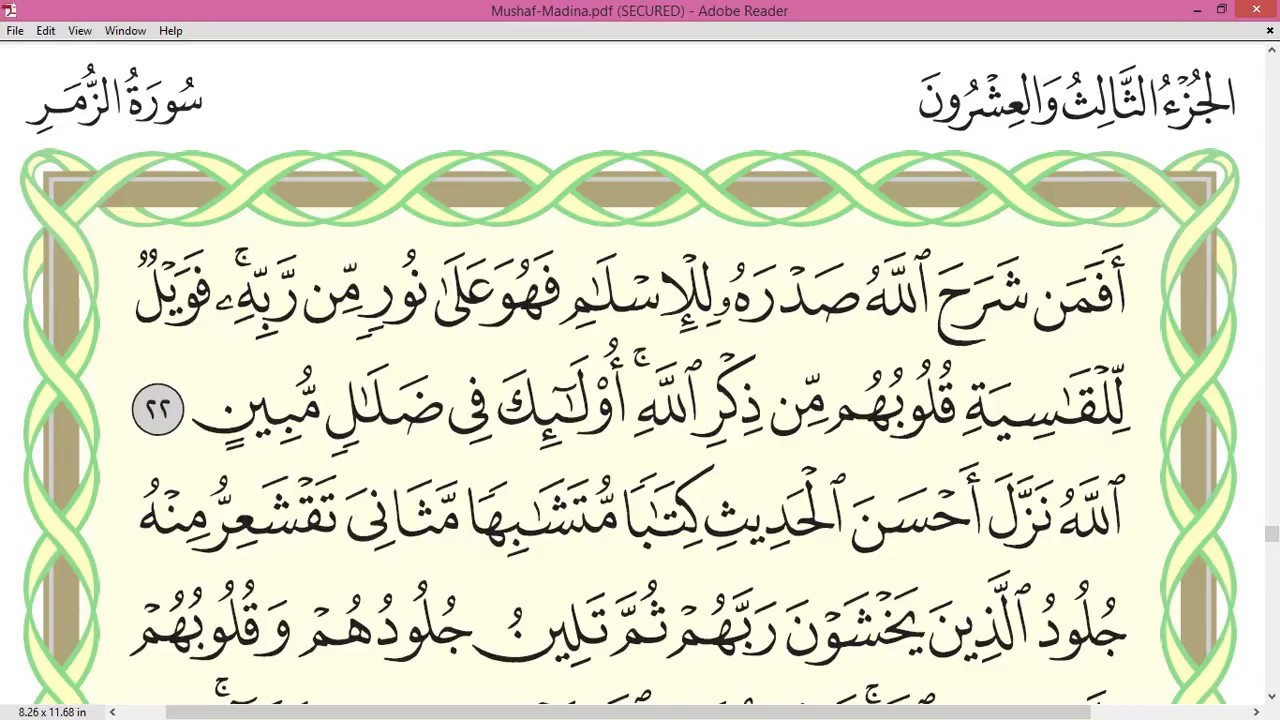 Mushaf-Madina.pdf (SECURED) - Adobe Reader
File Edit View Window Help
الجُزْءُ الثَّالِثُ وَالعِشْرُونَ
سُورَةُ الزُّمَرِ
أَفَمَن شَرَحَ ٱللَّهُ صَدْرَهُۥ لِلْإِسْلَٰمِ فَهُوَ عَلَىٰ نُورٍ مِّن رَّبِّهِۦۚ فَوَيْلٌ
لِّلْقَٰسِيَةِ قُلُوبُهُم مِّن ذِكْرِ ٱللَّهِۚ أُوْلَٰٓئِكَ فِى ضَلَٰلٍ مُّبِينٍ ٢٢
ٱللَّهُ نَزَّلَ أَحْسَنَ ٱلْحَدِيثِ كِتَٰبًا مُّتَشَٰبِهًا مَّثَانِىَ تَقْشَعِرُّ مِنْهُ
جُلُودُ ٱلَّذِينَ يَخْشَوْنَ رَبَّهُمْ ثُمَّ تَلِينُ جُلُودُهُمْ وَقُلُوبُهُمْ
8.26 x 11.68 in